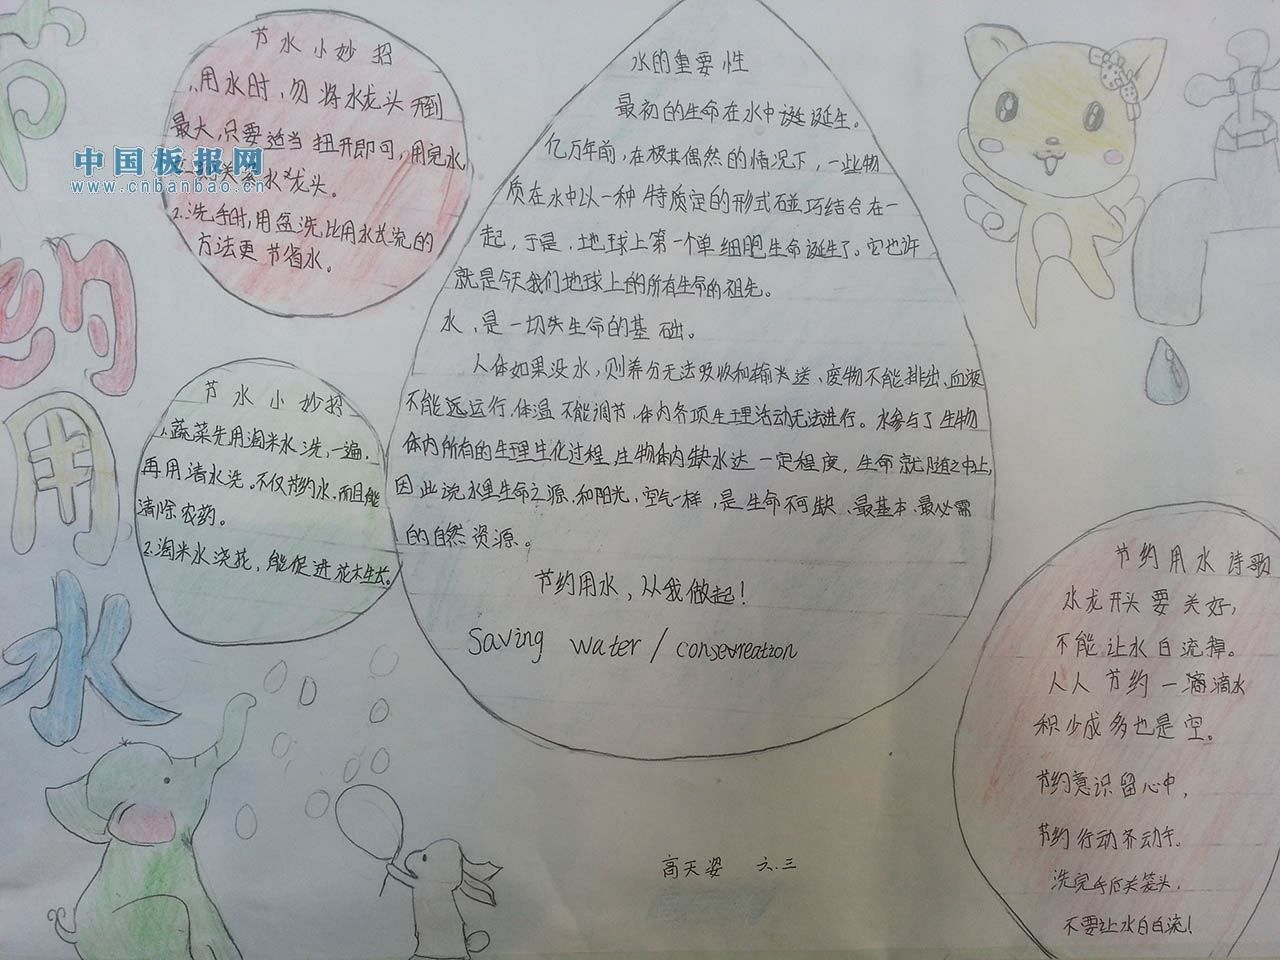 节约用水
节水小妙招
1.用水时，勿将水龙头开到
最大，只要适当扭开即可，用完水
水龙头。
2.洗手时，用盆洗比用水长流的
方法更节省水。
中国板报网
www.cnbanbao.cn
节水小妙招
1.蔬菜先用淘米水洗，一遍，
再用清水洗。不仅节约水，而且能
清除农药。
2.淘米水浇花，能促进花木生长。
水的重要性
最初的生命在水中诞诞生。
亿万年前，在极其偶然的情况下，一些物
质在水中以一种特质定的形式碰巧结合在一
起，于是，地球上第一个单细胞生命诞生了。它也许
就是今天我们地球上的所有生命的祖先。
水，是一切失生命的基础。
人体如果没水，则养分无法吸收和输送、废物不能排出、血液
不能远运行、体温不能调节、体内各项生理活动无法进行。水参与了生物
体内所有的生理生化过程，生物体内缺水达一定程度，生命就随之中止，
因此说水里生命之源、和阳光，空气一样，是生命不可缺、最基本、最必需
的自然资源。
节约用水，从我做起！
Saving water / consevreation
节约用水诗歌
水龙开头要关好，
不能让水白流掉。
人人节约一滴滴水
积少成多也是空。
节约意识留心中，
节约行动齐动手。
洗完手后关笼头，
不要让水白白流！
高天姿 六.三